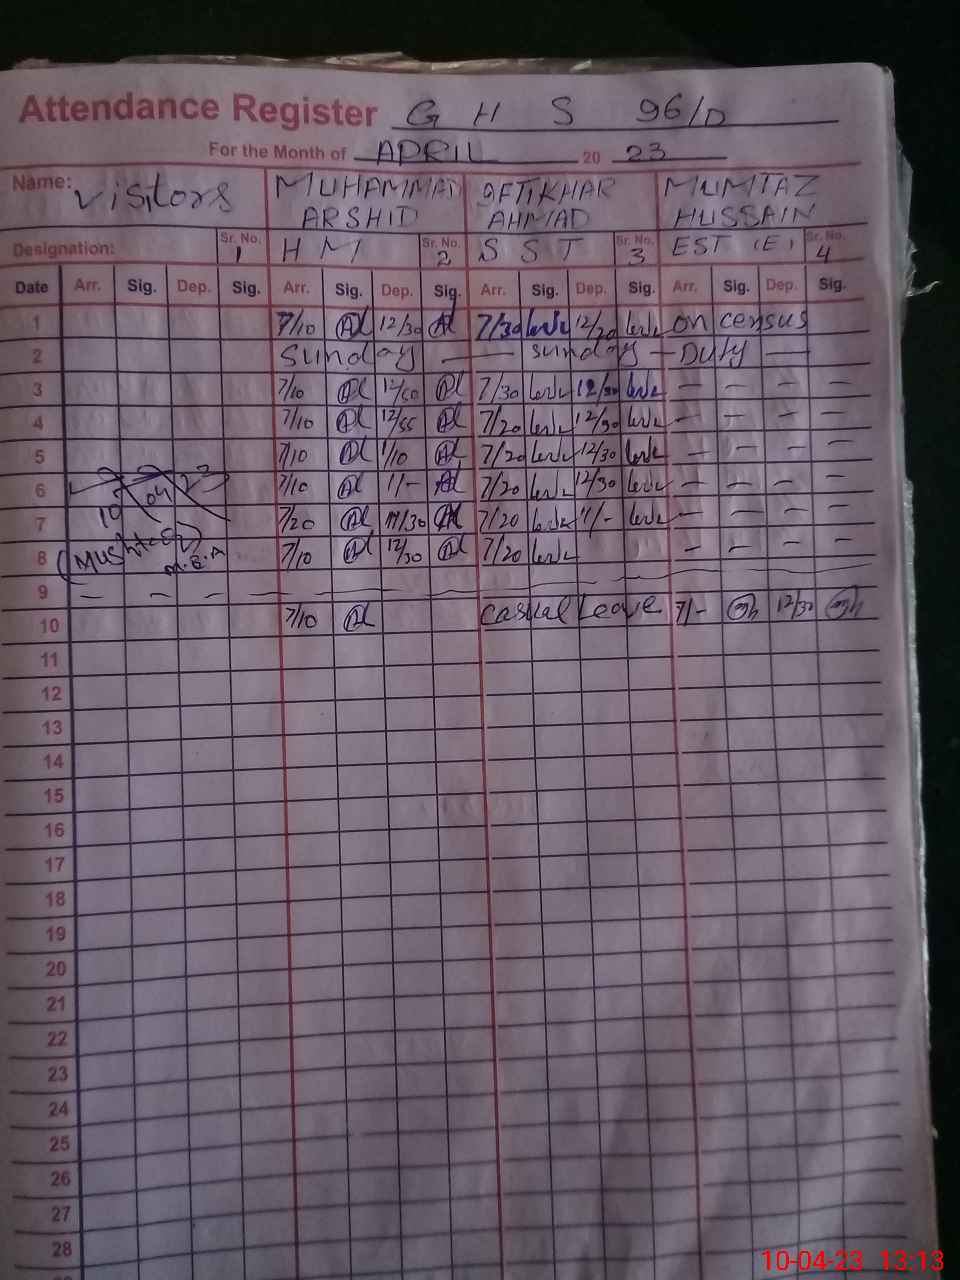 Attendance Register G H S 96/D
For the Month of APRIL 20 23
Name: Visitors MUHAMMAD ARSHID IFTIKHAR AHMAD MUMTAZ HUSSAIN
Designation: Sr. No. 1 H M Sr. No. 2 S S T Sr. No. 3 EST (E) Sr. No. 4
Date Arr. Sig. Dep. Sig. Arr. Sig. Dep. Sig. Arr. Sig. Dep. Sig. Arr. Sig. Dep. Sig.
1 7/10 12/30 7/30 12/30 on census
2 Sunday — sunday — Duty —
3 7/10 12/50 7/30 12/30 — — — —
4 7/10 12/55 7/20 12/30 — — — —
5 7/10 1/10 7/20 12/30 — — — —
6 7/10 1/- 7/20 12/30 — — — —
10 04 23
7 7/20 11/30 7/20 11/- — — — —
(Mushtaq)
M.E.A
8 7/10 12/30 7/20 — — — —
9 — — —
10 7/10 Casual Leave 7/- 12/30
11
12
13
14
15
16
17
18
19
20
21
22
23
24
25
26
27
28
10-04-23 13:13